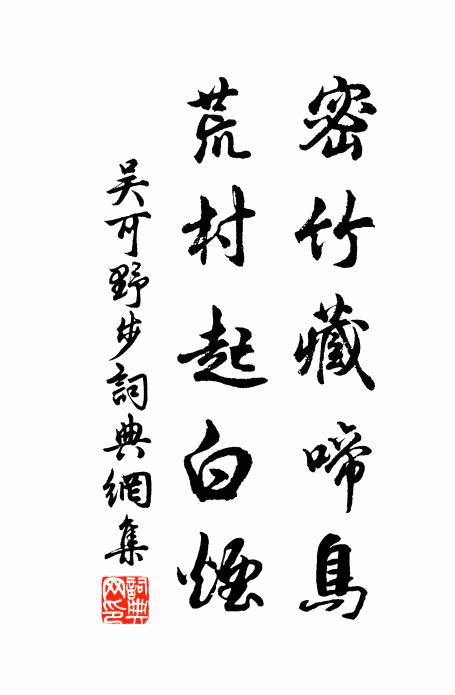 密竹藏啼鳥
荒村起白煙
吴可野步詞典網集
詞典网印